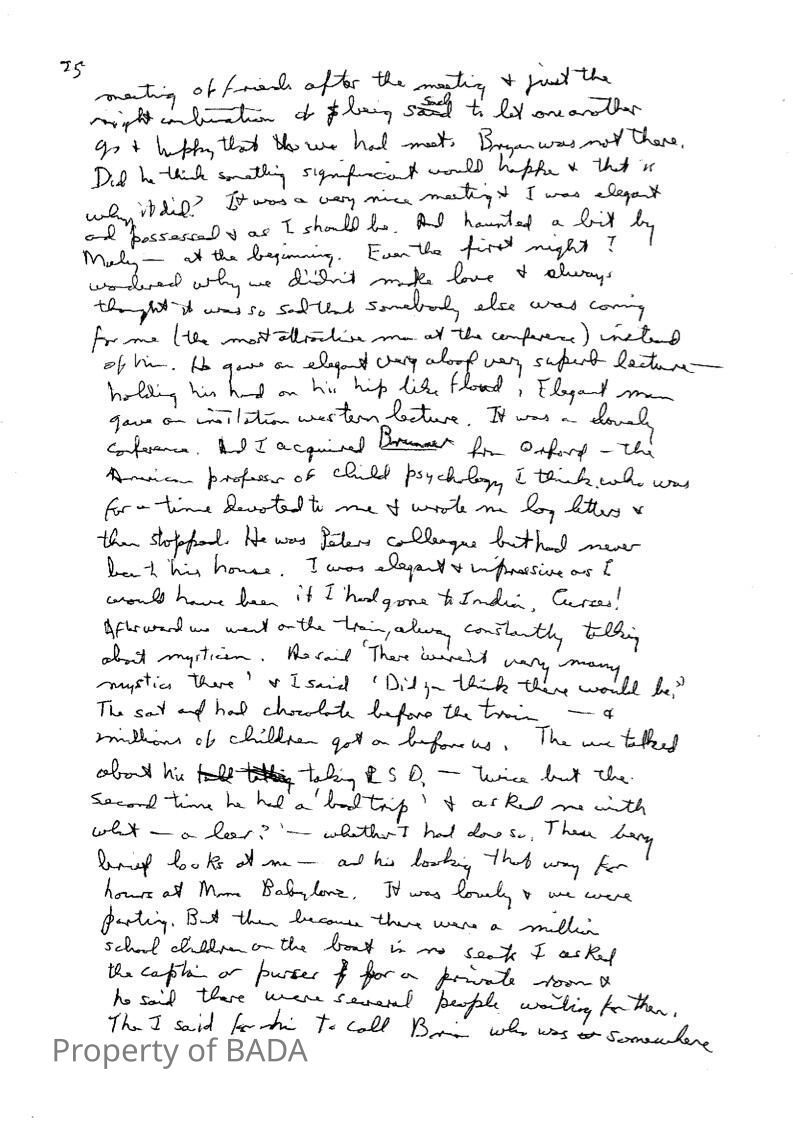 25
meeting of friends after the meeting & just the
right combination of being sad to let one another
go & happy that we had met. Bryan was not there.
Did he think something significant would happe & that is
why it did? It was a very nice meeting & I was elegant
and possessed & as I should be. And haunted a bit by
— at the beginning. Even the first night I
wondered why we didn't make love & always
thought it was so sad that somebody else was coming
for me (the most attractive man at the conference) instead
of him. He gave an elegant very aloof very superb lecture —
holding his hand on his hip like Elegant man
gave an western lecture. It was a lovely
conference. And I acquired Brunner from Oxford – the
American professor of child psychology I think, who was
for a time devoted to me & wrote me long letters &
then stopped. He was Peters colleague but had never
been to his house. I was elegant & impressive as I
would have been if I had gone to India, Curses!
Afterward we went on the train, always constantly talking
about mysticism. He said 'There weren't very many
mystics there' & I said 'Did you think there would be?'
The sat and had chocolate before the train — &
millions of children got on before us. The we talked
about his taking LSD, — twice but the
second time he had a 'bad trip' & asked me with
what — a leer? — whether I had done so. These very
brief looks at me — and his looking that way for
hours at Mme Babylone. It was lovely & we were
parting. But then because there were a million
school children on the boat in no seats I asked
the captain or purser for a private room &
he said there were several people waiting for them.
The I said for him to call Brian who was somewhere
Property of BADA